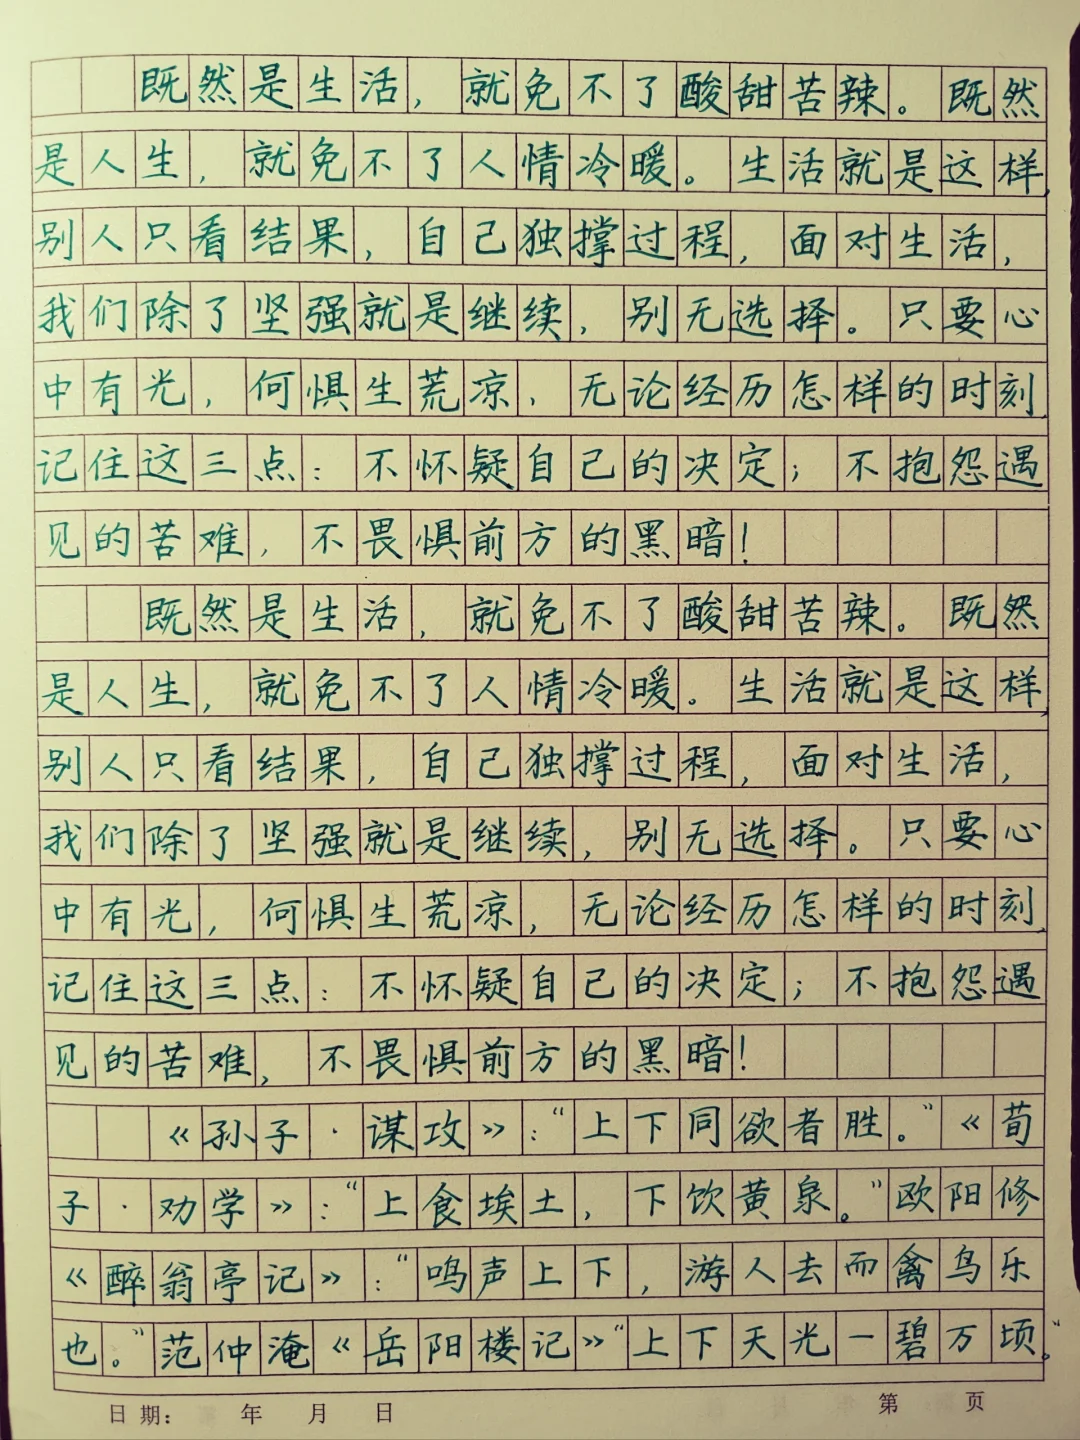 既然是生活，就免不了酸甜苦辣。既然
是人生，就免不了人情冷暖。生活就是这样，
别人只看结果，自己独撑过程，面对生活，
我们除了坚强就是继续，别无选择。只要心
中有光，何惧生荒凉，无论经历怎样的时刻，
记住这三点：不怀疑自己的决定；不抱怨遇
见的苦难，不畏惧前方的黑暗！
既然是生活，就免不了酸甜苦辣。既然
是人生，就免不了人情冷暖。生活就是这样，
别人只看结果，自己独撑过程，面对生活，
我们除了坚强就是继续，别无选择。只要心
中有光，何惧生荒凉，无论经历怎样的时刻，
记住这三点：不怀疑自己的决定；不抱怨遇
见的苦难，不畏惧前方的黑暗！
《孙子·谋攻》：“上下同欲者胜。”《荀
子·劝学》：“上食埃土，下饮黄泉。”欧阳修
《醉翁亭记》：“鸣声上下，游人去而禽鸟乐
也。”范仲淹《岳阳楼记》“上下天光一碧万顷。”
日期： 年 月 日 第 页